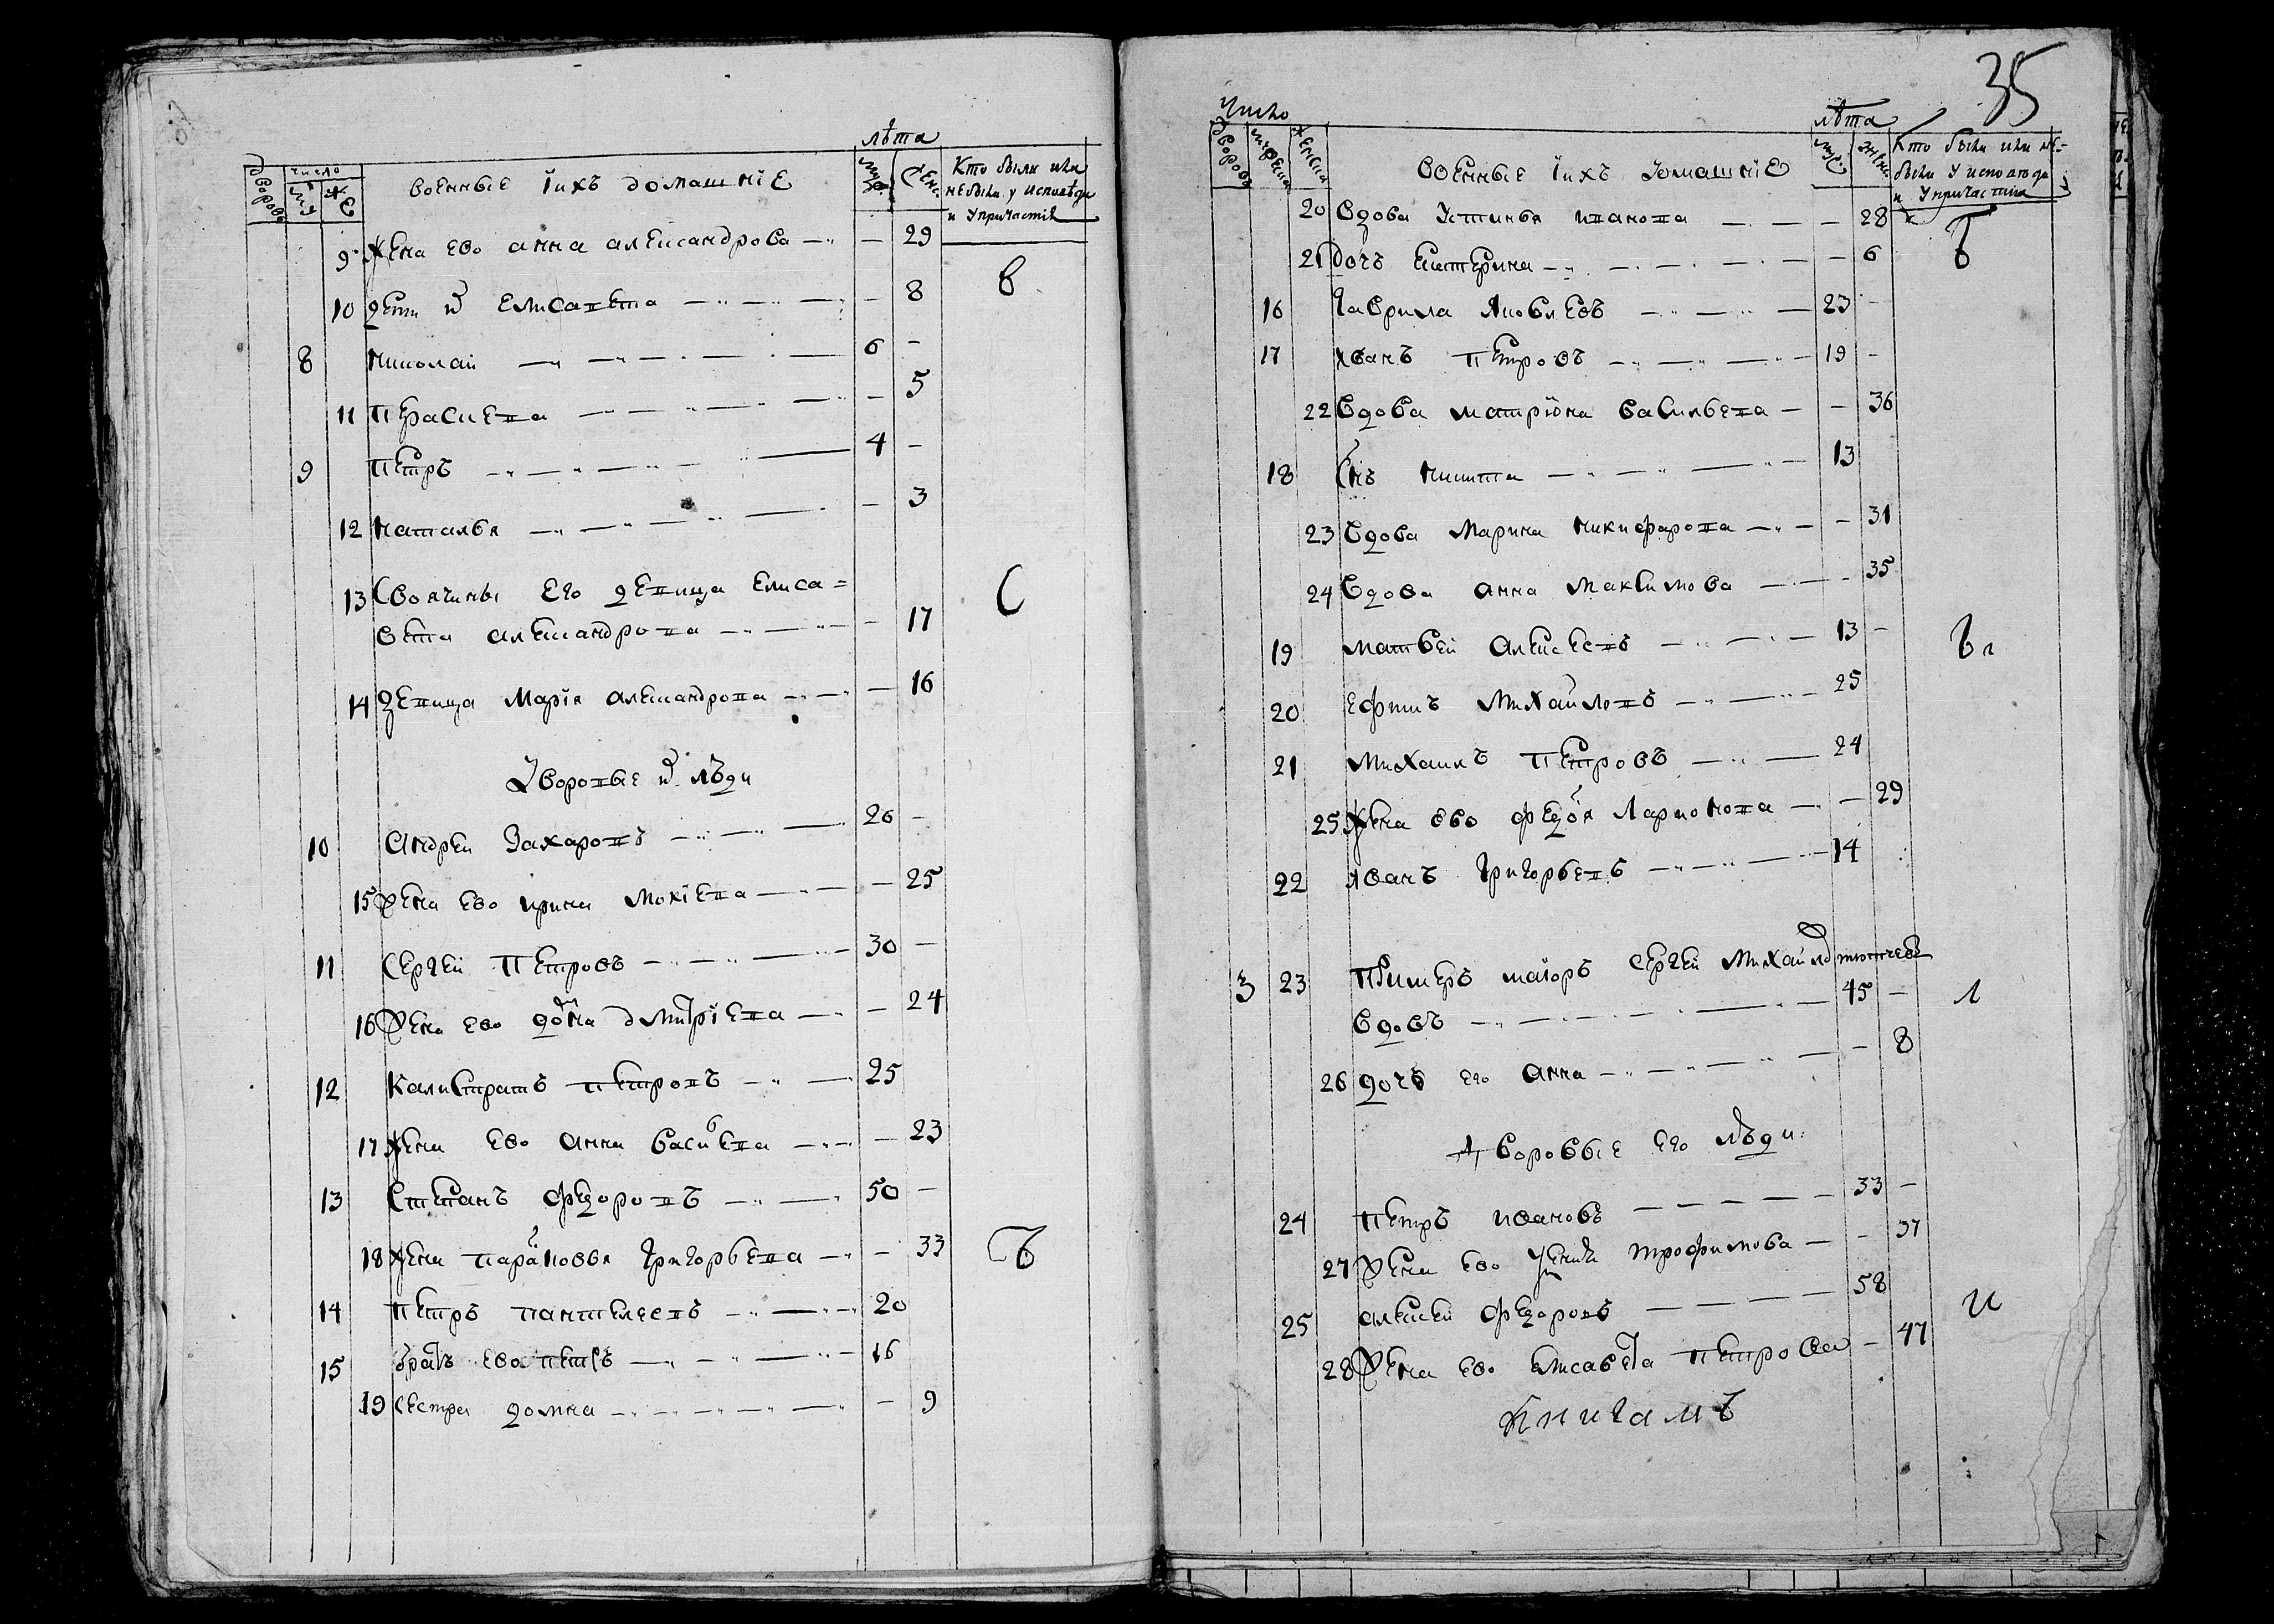 лѣта
Дворовъ число муж. Ж военные їихъ домашнїе муж. Женс. Кто были или
небыли у исповѣди
и упричастїя
9 Жена ево анна александрова — 29
10 дети их елисавета — 8
8 николай — 6 -
11 Прасковева — 5
9 Петръ — 4 -
12 наталья — 3
13 Своячины его девица елиса=
вета александрова — 17
14 девица Марїя александрова — 16
Дворовые их люди
10 Андрей Захаровъ — 26 -
15 Жена ево ирина мокїева — 25
11 Сергей Петровъ — 30 -
16 Жена ево домна дмитрїева — 24
12 Калистратъ петровъ — 25
17 Жена ево анна василева — 23
13 Степанъ федоровъ — 50 -
18 Жена парасковья григорьева — 33
14 Петръ пантелеевъ — 20
15 братъ ево петръ — 16
19 сестра домна — 9
35
число лѣта
дворовъ мужеска женска военные їихъ домашнїе муж. женс. Кто были или не=
были у исповѣди
и упричастия
20 вдова устинья иванова — 28
21 дочь катерина — 6
16 гаврила яковлевъ — 23 -
17 иванъ петровъ — 19 -
22 вдова матрїона васильева — 36
18 Снъ никита — 13
23 вдова марина никифарова — 31
24 вдова анна максимова — 35
19 матвей алексеевъ — 13 -
20 ефимъ михайловъ — 25
21 михаилъ петровъ — 24
25 Жена ево федося ларионова — 29
22 иванъ григорьевъ — 14
3 23 Примеръ маіоръ сергей михайлов тютчевъ
вдовъ — 45 -
26 дочь его анна — 8
Дворовые его люди:
24 Петръ ивановъ — 33 -
27 Жена ево трофимова — 37
25 алексей федоровъ — 58
28 Жена ево елисавета петрова — 47
книгамъ